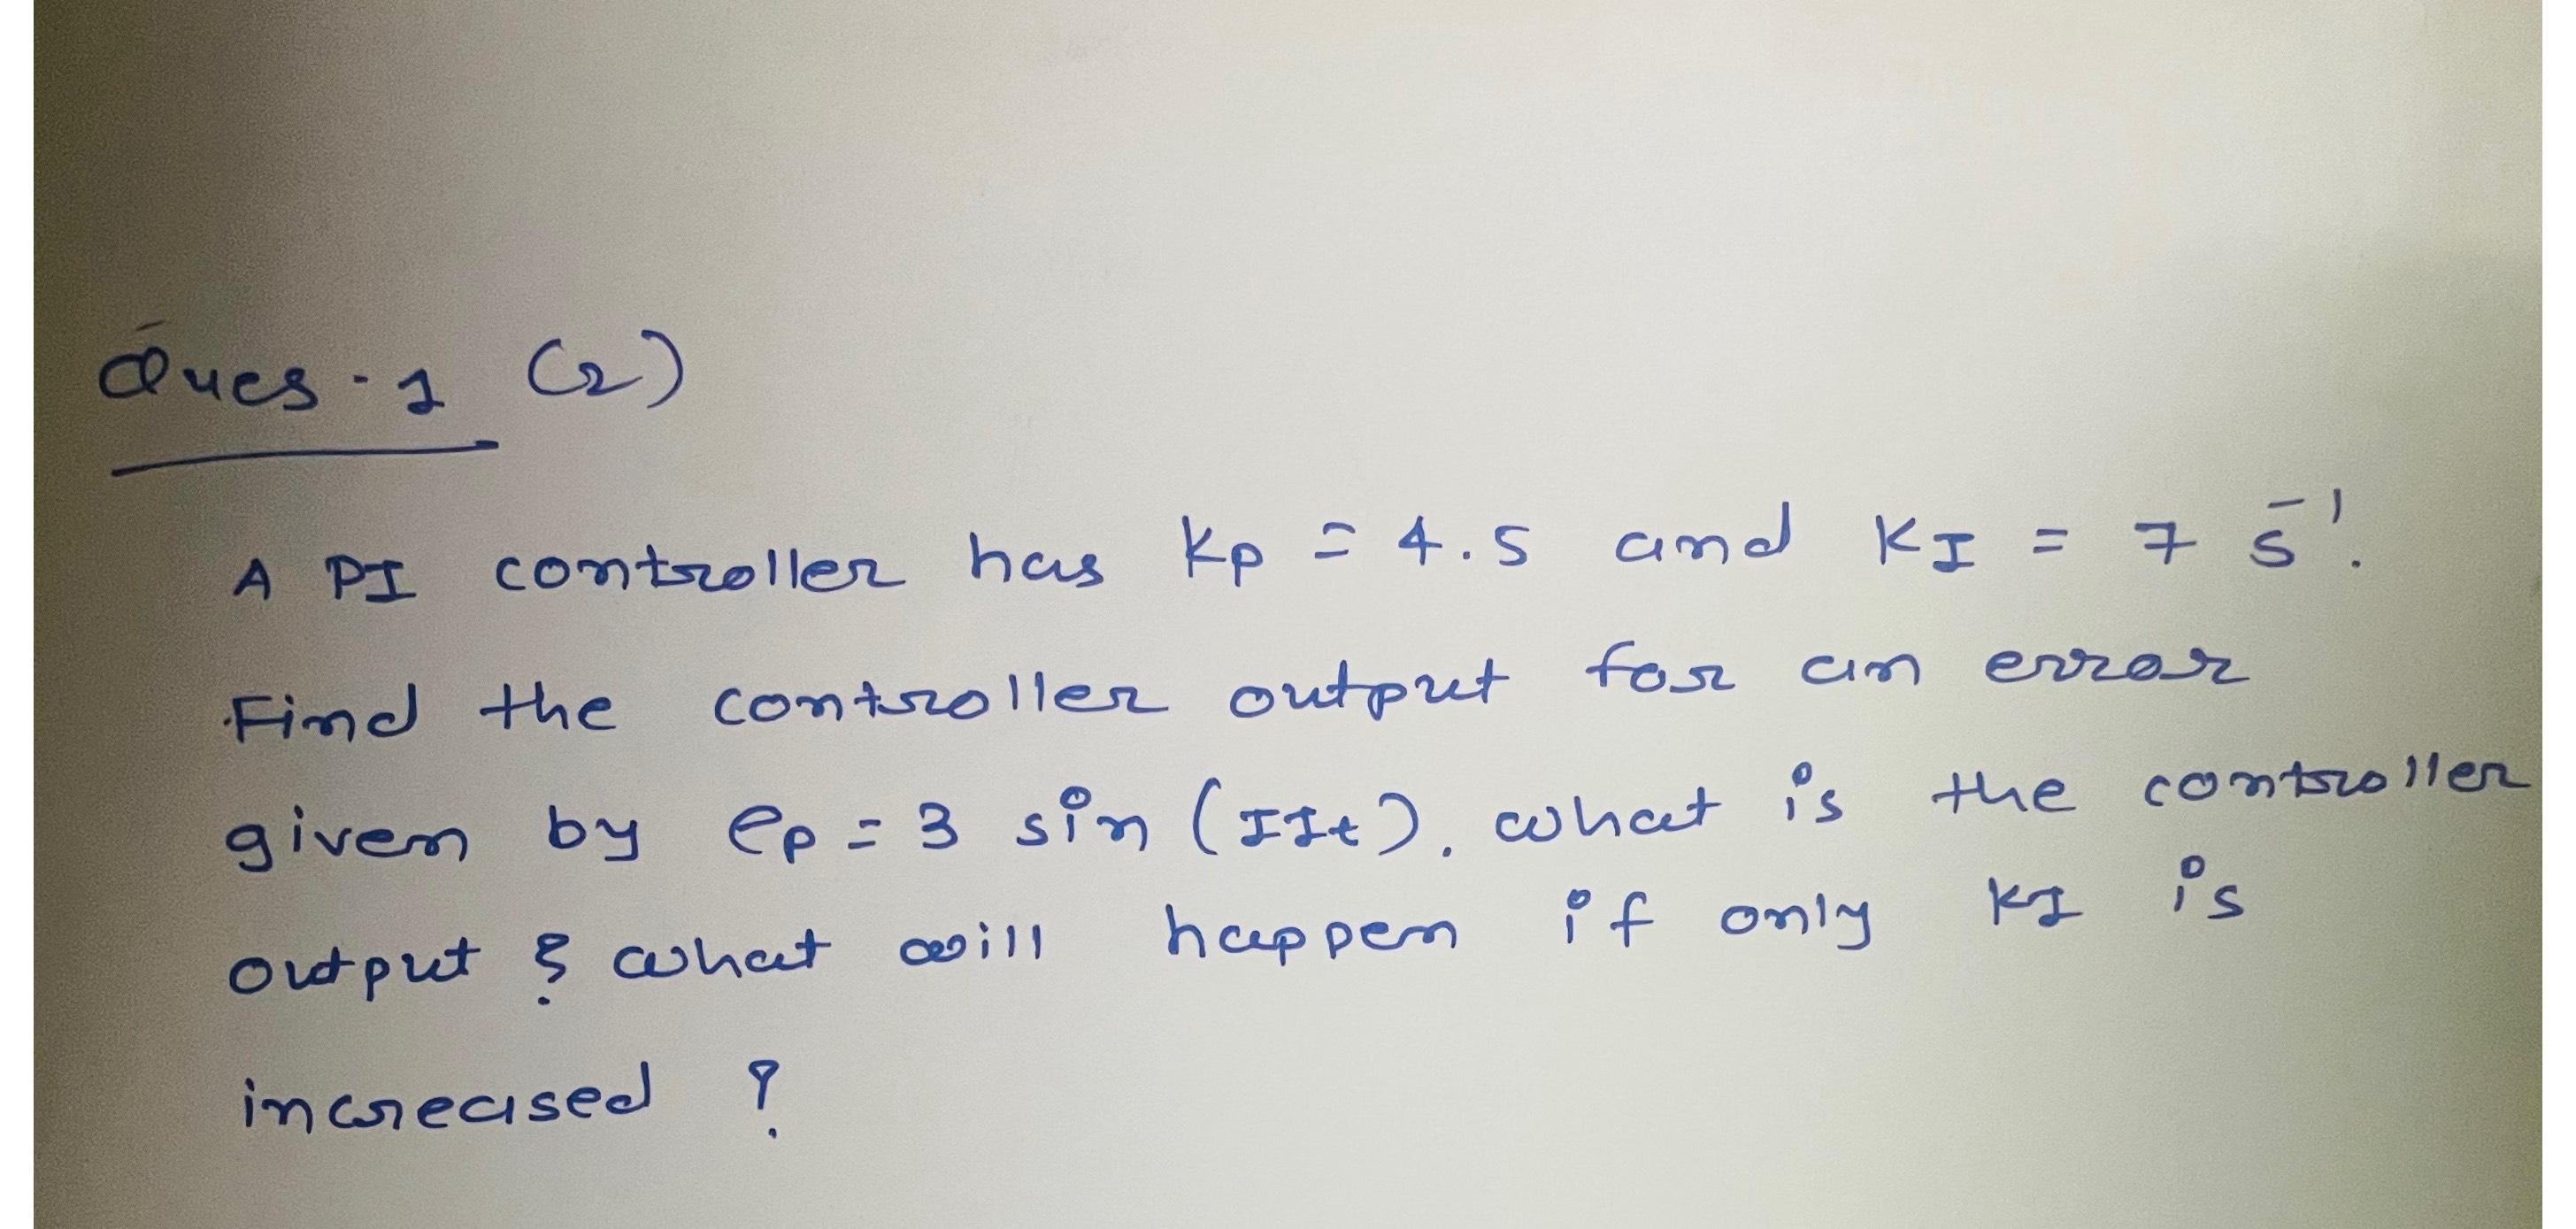 Ques.1 (2)
A PI controller has Kp = 4.5 and KI = 7 s⁻¹.
Find the controller output for an error
given by ep = 3 sin (IIt). what is the controller
output ? what will happen if only KI is
increased ?